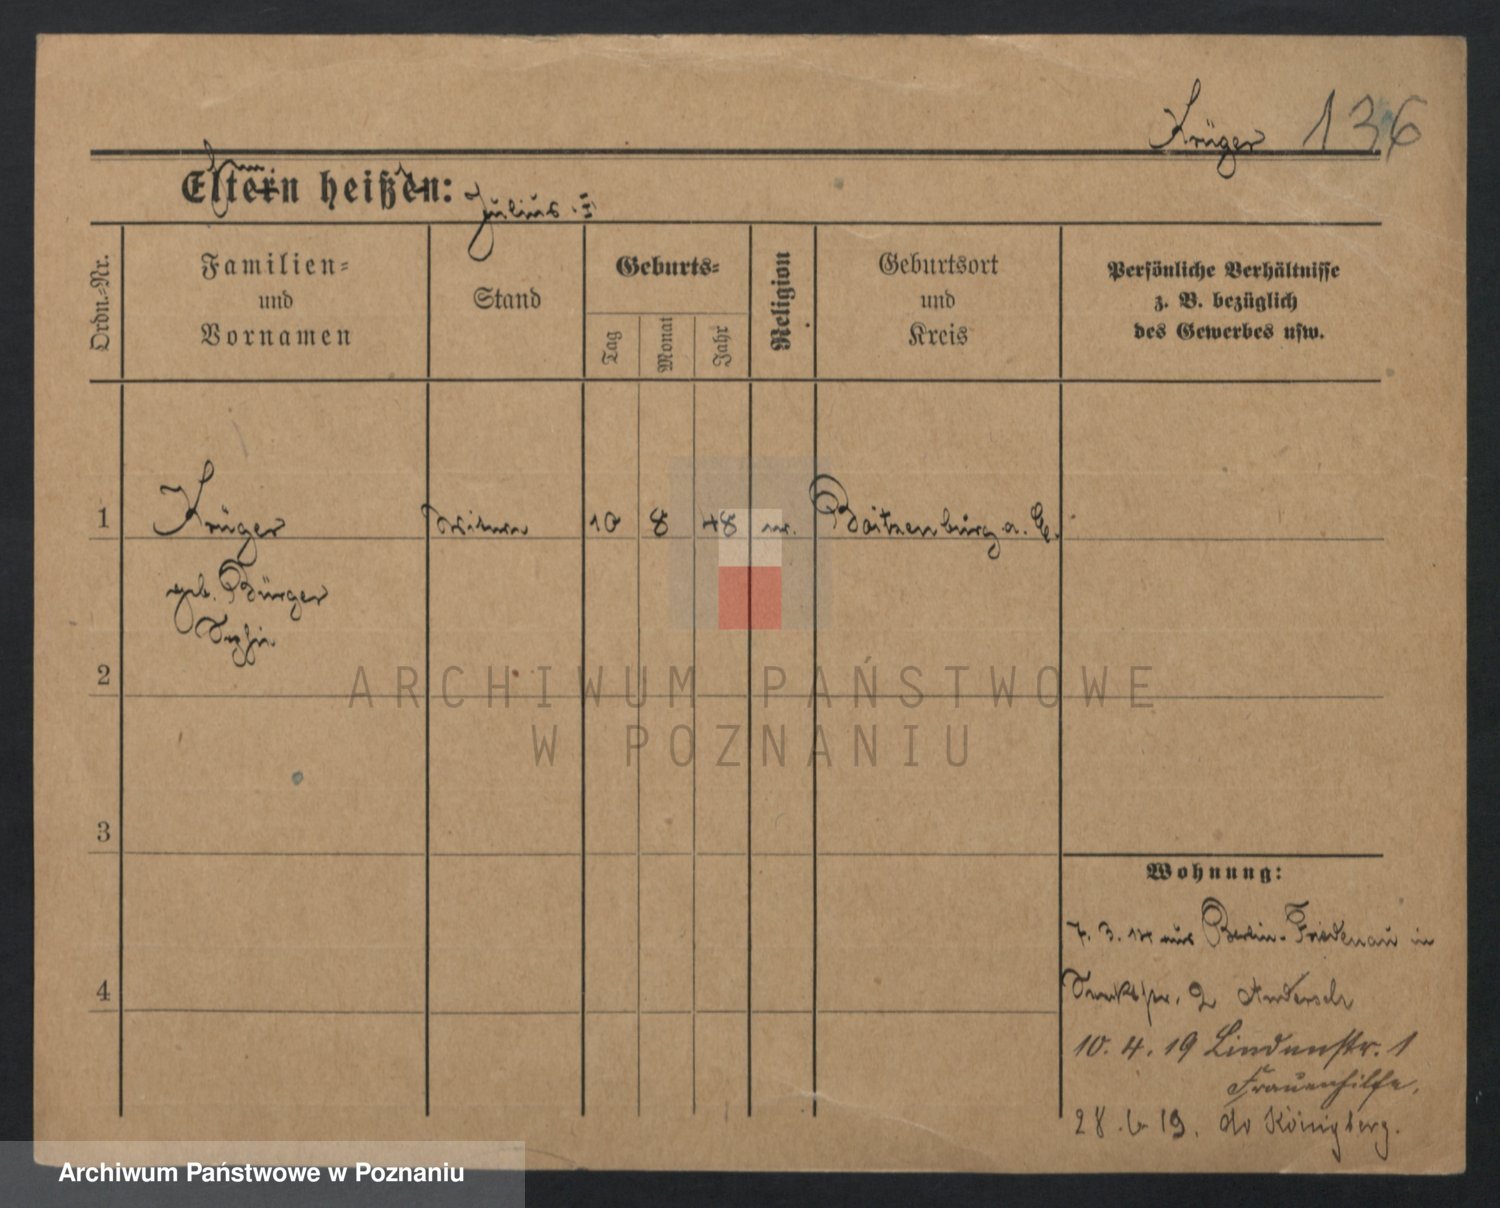 Krüger 136
Eltern heißen:
Julius I
Ordn.-Nr.
Familien-
und
Vornamen
Stand
Geburts-
Tag
Monat
Jahr
Religion
Geburtsort
und
Kreis
Persönliche Verhältnisse
z. B. bezüglich
des Gewerbes usw.
1 Krüger Witwe 10 8 48 ev. Boitzenburg a. E.
geb. Bürger
Sophie
2
3
4
Wohnung:
7. 3. 14 aus Berlin-Friedenau in
2 Andersch
10. 4. 19 Lindenstr. 1
Frauenhilfe.
28. 6 19. do Königsberg.
ARCHIWUM PAŃSTWOWE
W POZNANIU
Archiwum Państwowe w Poznaniu